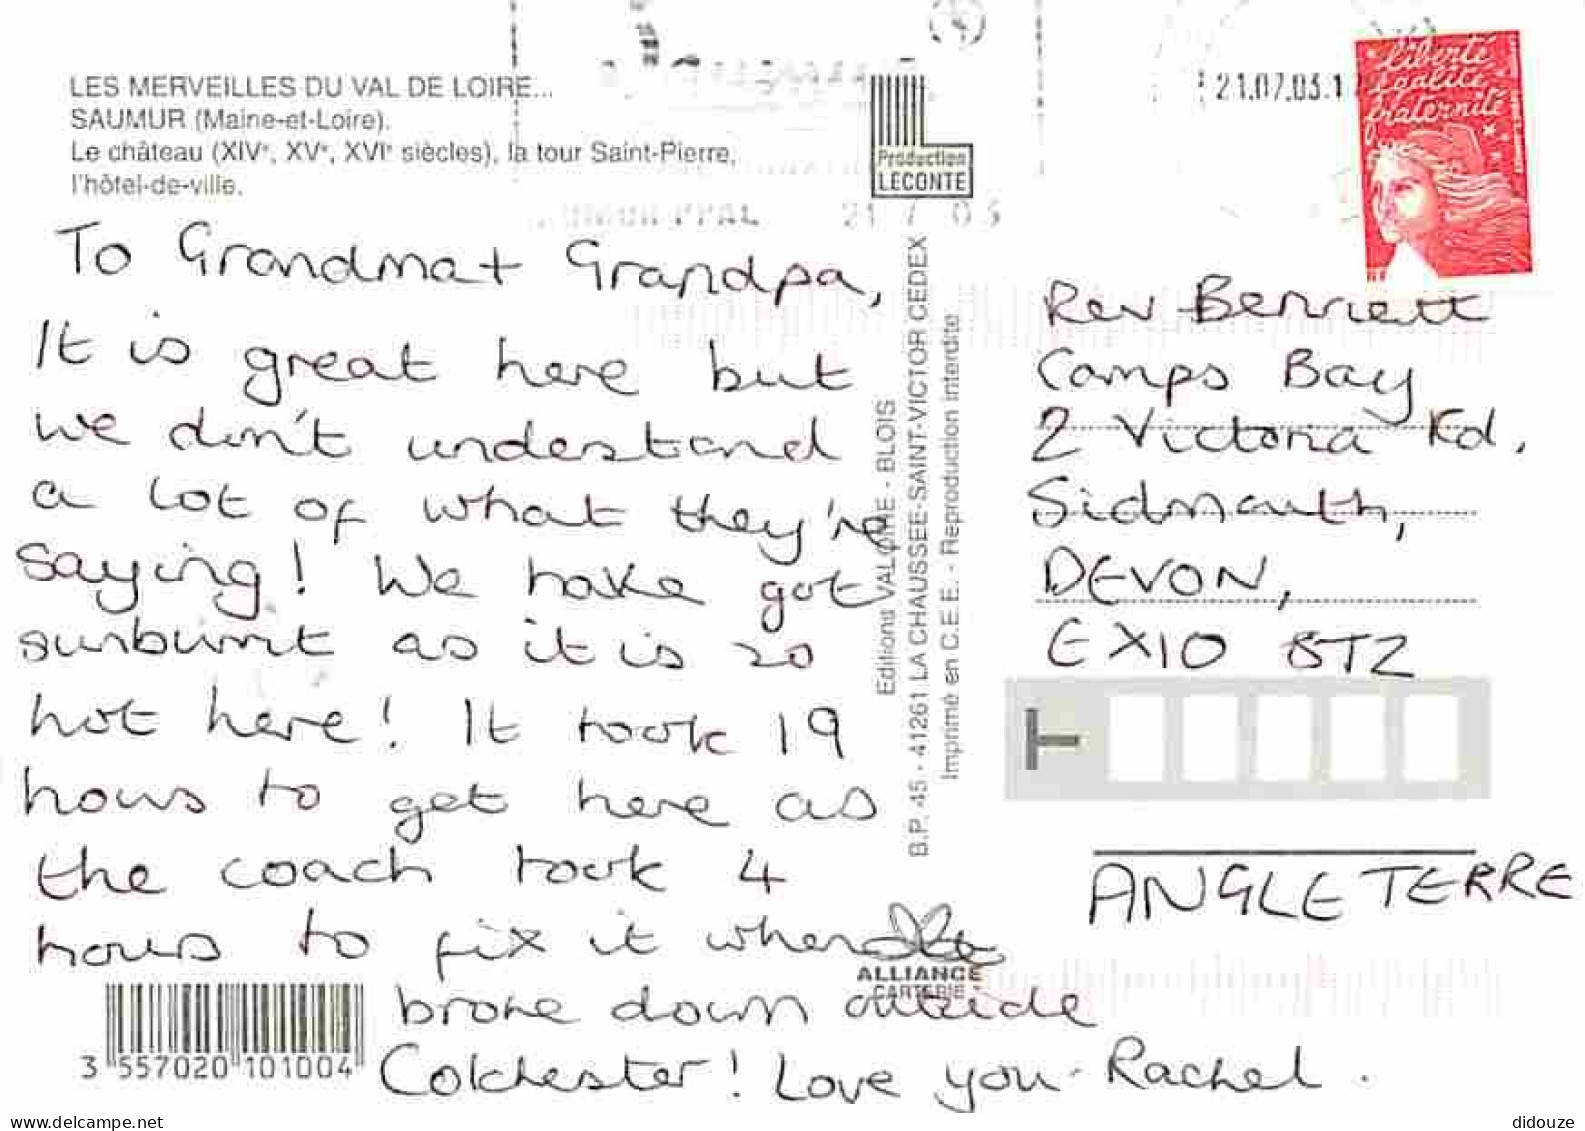 LES MERVEILLES DU VAL DE LOIRE...
SAUMUR (Maine-et-Loire).
Le château (XIVe, XVe, XVIe siècles), la tour Saint-Pierre,
l'hôtel-de-ville.
Production
LECONTE
21.07.03.1
liberté
égalité
fraternité
21 7 03
To Grandma + Grandpa,
It is great here but
we don't understand
a lot of what they're
saying! We have got
sunburnt as it is so
hot here! It took 19
hours to get here as
the coach took 4
hours to fix it when it
broke down outside
Colchester! Love you Rachel.
Editions VALOIRE - BLOIS
B.P. 45 - 41261 LA CHAUSSEE-SAINT-VICTOR CEDEX
Imprimé en C.E.E. - Reproduction interdite
Rev Bennett
Camps Bay
2 Victoria Rd,
Sidmouth,
DEVON,
EX10 8TZ
T
ANGLETERRE
ALLIANCE
CARTERIE
3 557020 101004
delcampe.net
didouze